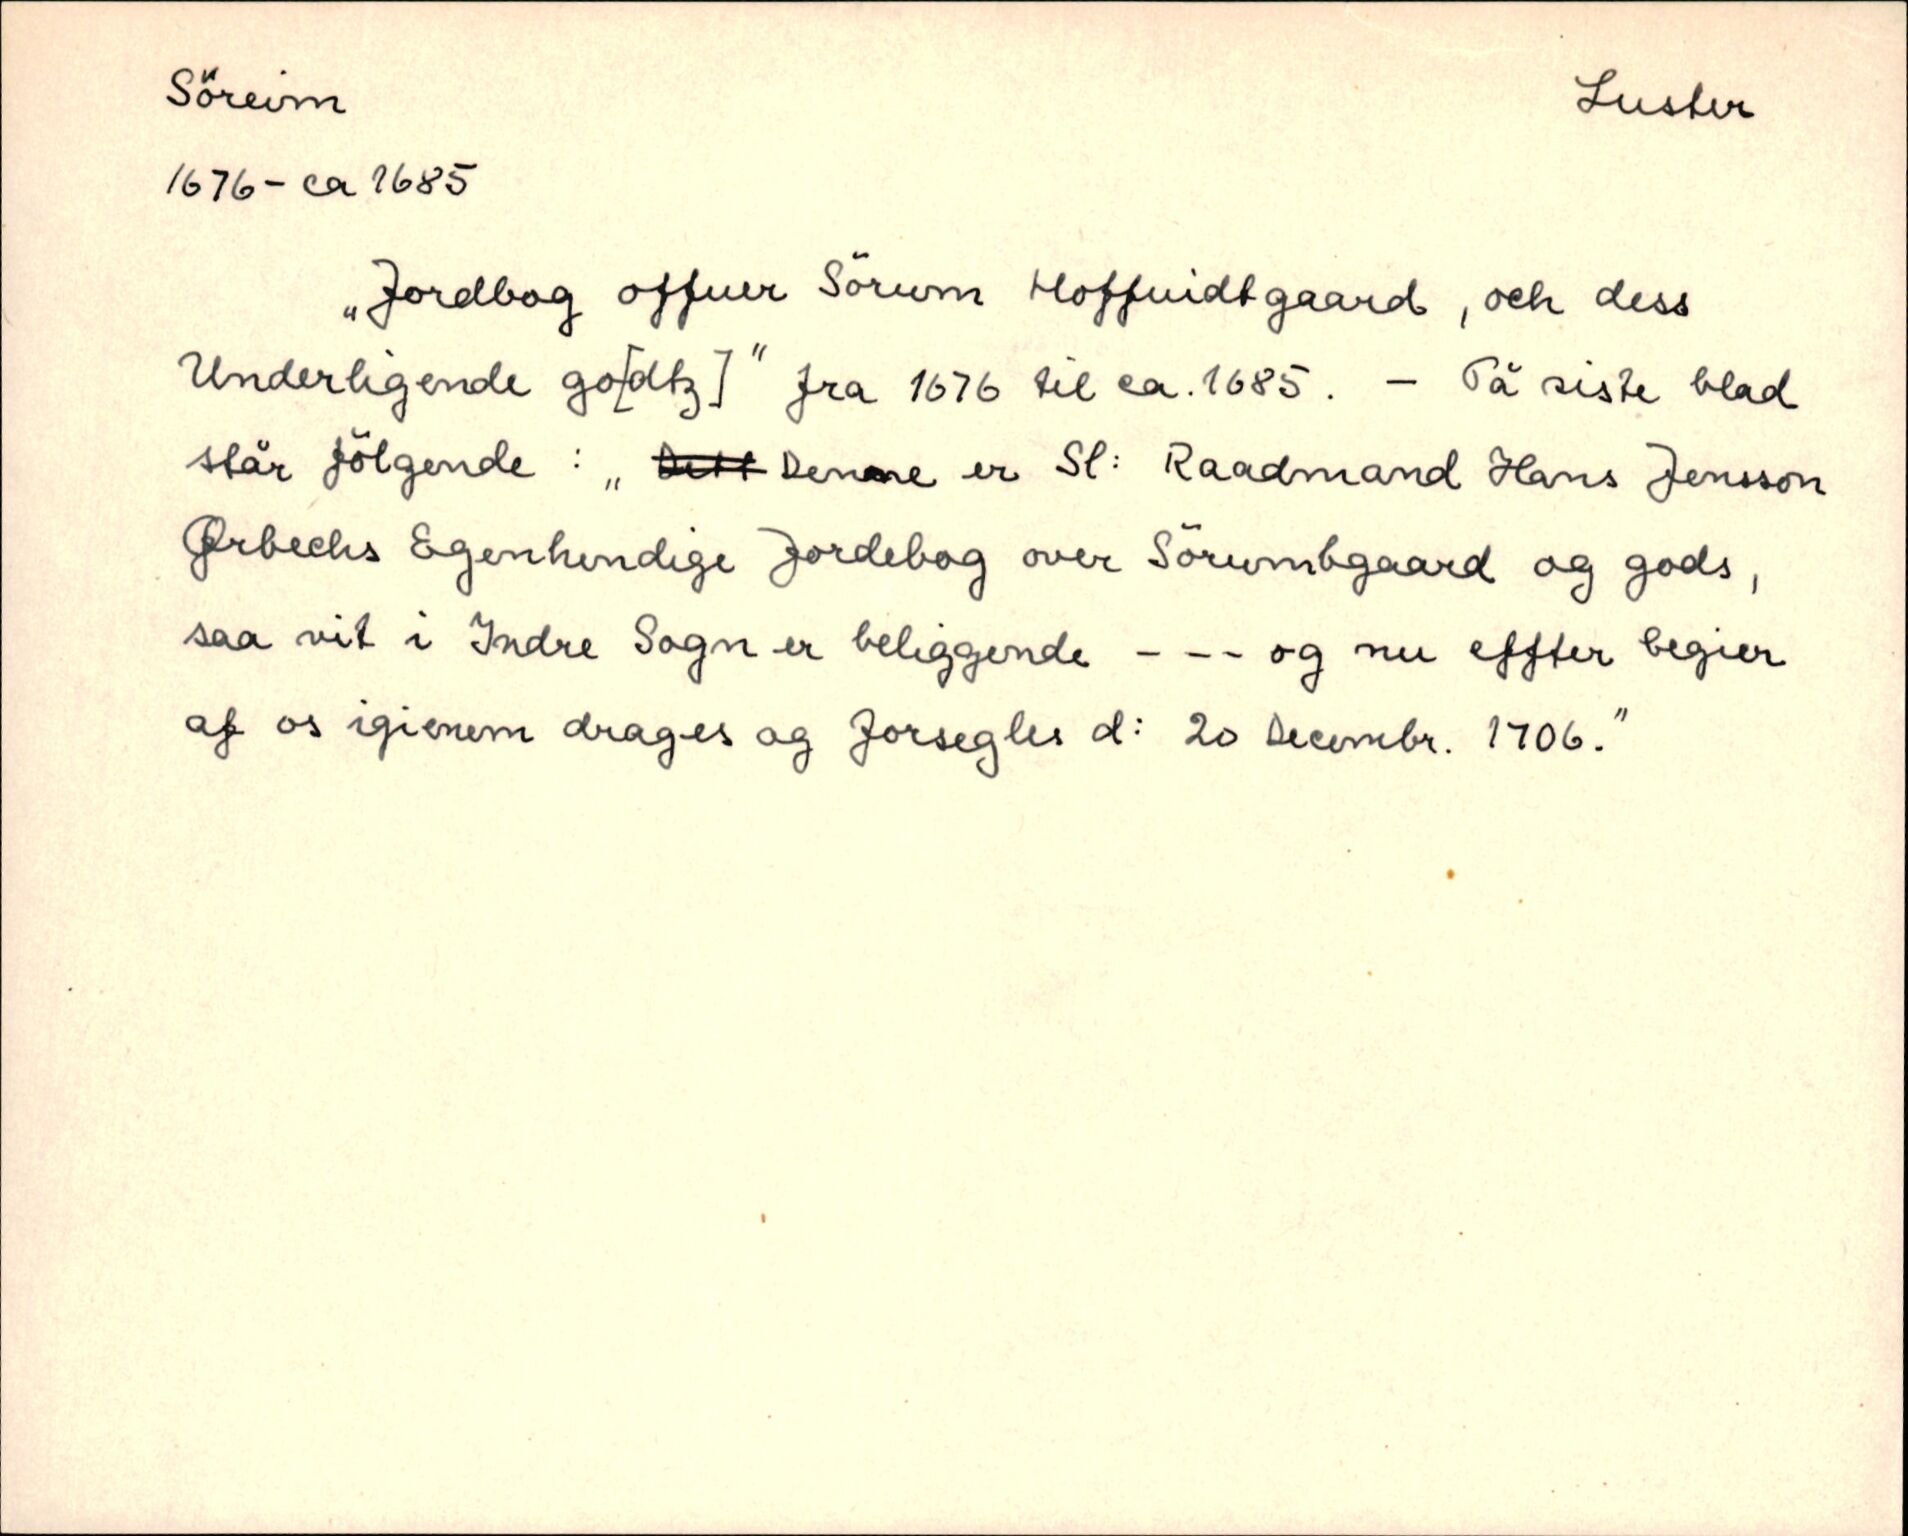 Söreim Luster
1676 - ca 1685
„Jordbog offuer Sörum Hoffuidtgaard, och dess
Underligende go[dtz]" fra 1676 til ca. 1685. – På siste blad
står fölgende : „ Dett Denne er Sl: Raadmand Hans Jensson
Ørbechs Egenhendige Jordebog over Sörumbgaard og gods,
saa vit i Indre Sogn er beliggende - - - og nu effter begier
af os igienem drages og forsegles d: 20 Decembr. 1706."